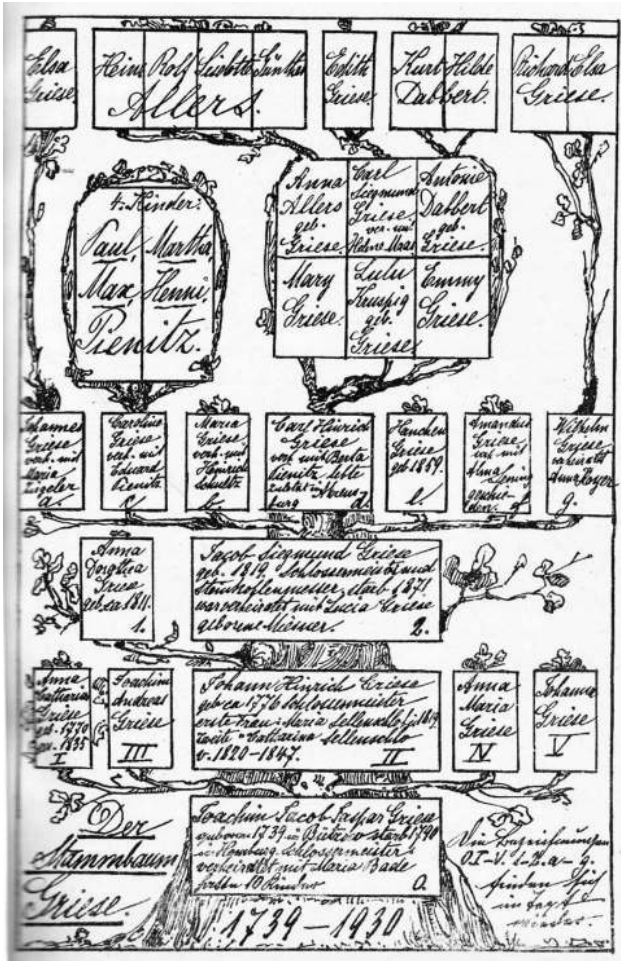 Elsa
Griese.
Heinz Rolf Liselotte Günther
Allers.
Edith
Griese.
Kurt Hilde
Dabbert.
Richard Elsa
Griese.
4 Kinder:
Paul, Martha
Max, Henni,
Pienitz.
Anna
Allers
geb.
Griese.
Carl
Siegmund
Griese.
ver. mit
Maas
Antonie
Dabbert
geb.
Griese.
Mary
Griese.
Lulu
Kruspig
geb.
Griese
Emmy
Griese.
Johannes
Griese
verh. mit
Maria
a.
Caroline
Griese
verh. mit
Eduard
Pienitz
Maria
Griese,
verh. mit
Heinrich
Schultz
b.
Carl Hinrich
Griese
verh. mit Berta
Pienitz lebte
zuletzt in
burg d.
Hanchen
Griese
geb. 1859.
e.
Amandus
Griese,
verh. mit
Alma
geschie-
den.
Wilhelm
Griese
verheiratet
Anna Royer
g.
Anna
Dorothea
Griese
geb. ca 1811.
1.
Jacob Siegmund Griese
geb. 1819. Schlossermeister und
starb 1871
war verheiratet mit Lucia Griese
geborene Meisner. 2.
Anna
Catharina
Griese
geb. 1770
1835
I
Joachim
Andreas
Griese
III
Johann Hinrich Griese
geb ca 1776 Schlossermeister
erste Frau: Maria Sellenschlo bis 1819.
zweite " Catharina Sellenschlo
v. 1820-1847. II
Anna
Maria
Griese
IV
Johanna
Griese
V
Joachim Jacob Caspar Griese
geboren 1739 in Bützow starb 1790
in Schlossermeister
verheiratet mit Maria Bade
10 Kinder O.
Der
Stammbaum
Griese.
Die Bezeichnungen
O. I-V. 1-2. a-g.
finden sich
im Text
wieder.
1739-1930